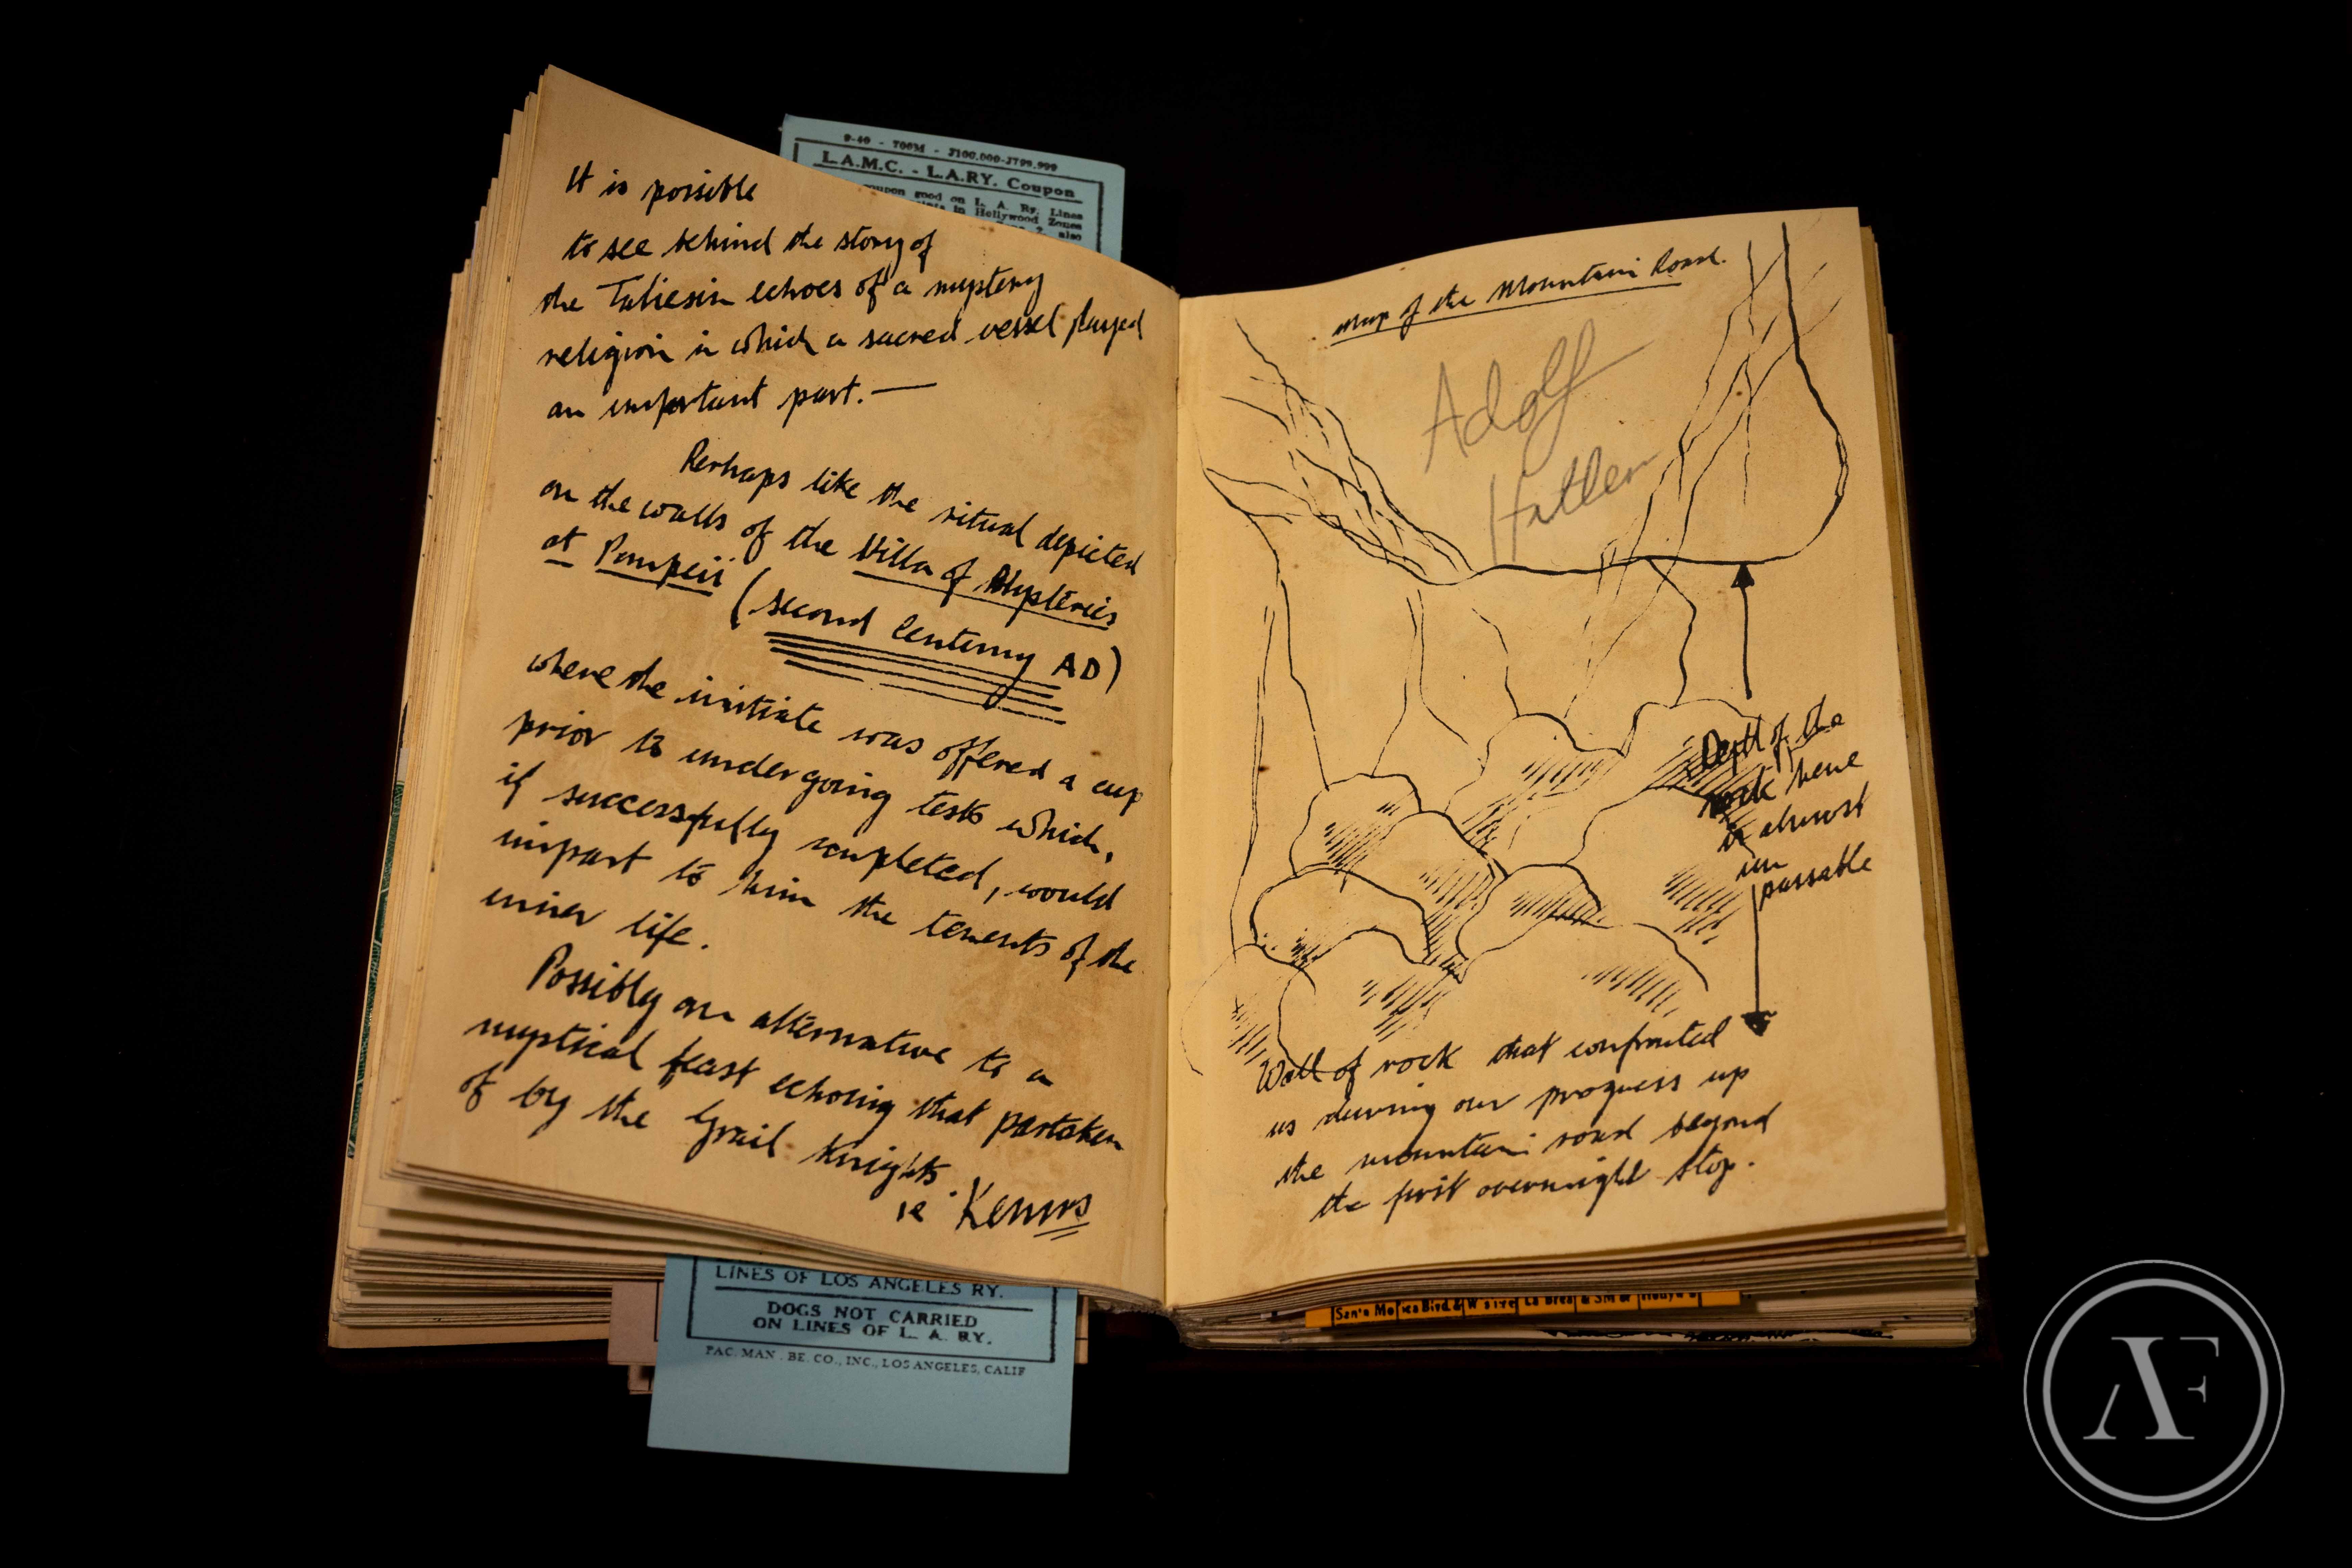 9-40 - 700M - J100,000-J799,999
L.A.M.C. - L.A.RY. Coupon
coupon good on L. A. Ry. Lines
in Hollywood Zones
also
It is possible
to see behind the story of
the Taliesin echoes of a mystery
religion in which a sacred vessel played
an important part. —
Perhaps like the ritual depicted
on the walls of the Villa of Mysteries
at Pompeii (second Century AD)
where the initiate was offered a cup
prior to undergoing tests which,
if successfully completed, would
impart to him the tenents of the
inner life.
Possibly an alternative to a
mystical feast echoing that partaken
of by the Grail Knights
ie
LINES OF LOS ANGELES RY.
DOGS NOT CARRIED
ON LINES OF L. A. RY.
PAC. MAN. BE. CO., INC., LOS ANGELES, CALIF
Map of the Mountain Road.
Adolf
Hitler
Depth of the
rock here
is almost
im
passable
Wall of rock that confronted
us during our progress up
the mountain road beyond
the first overnight stop.
AF